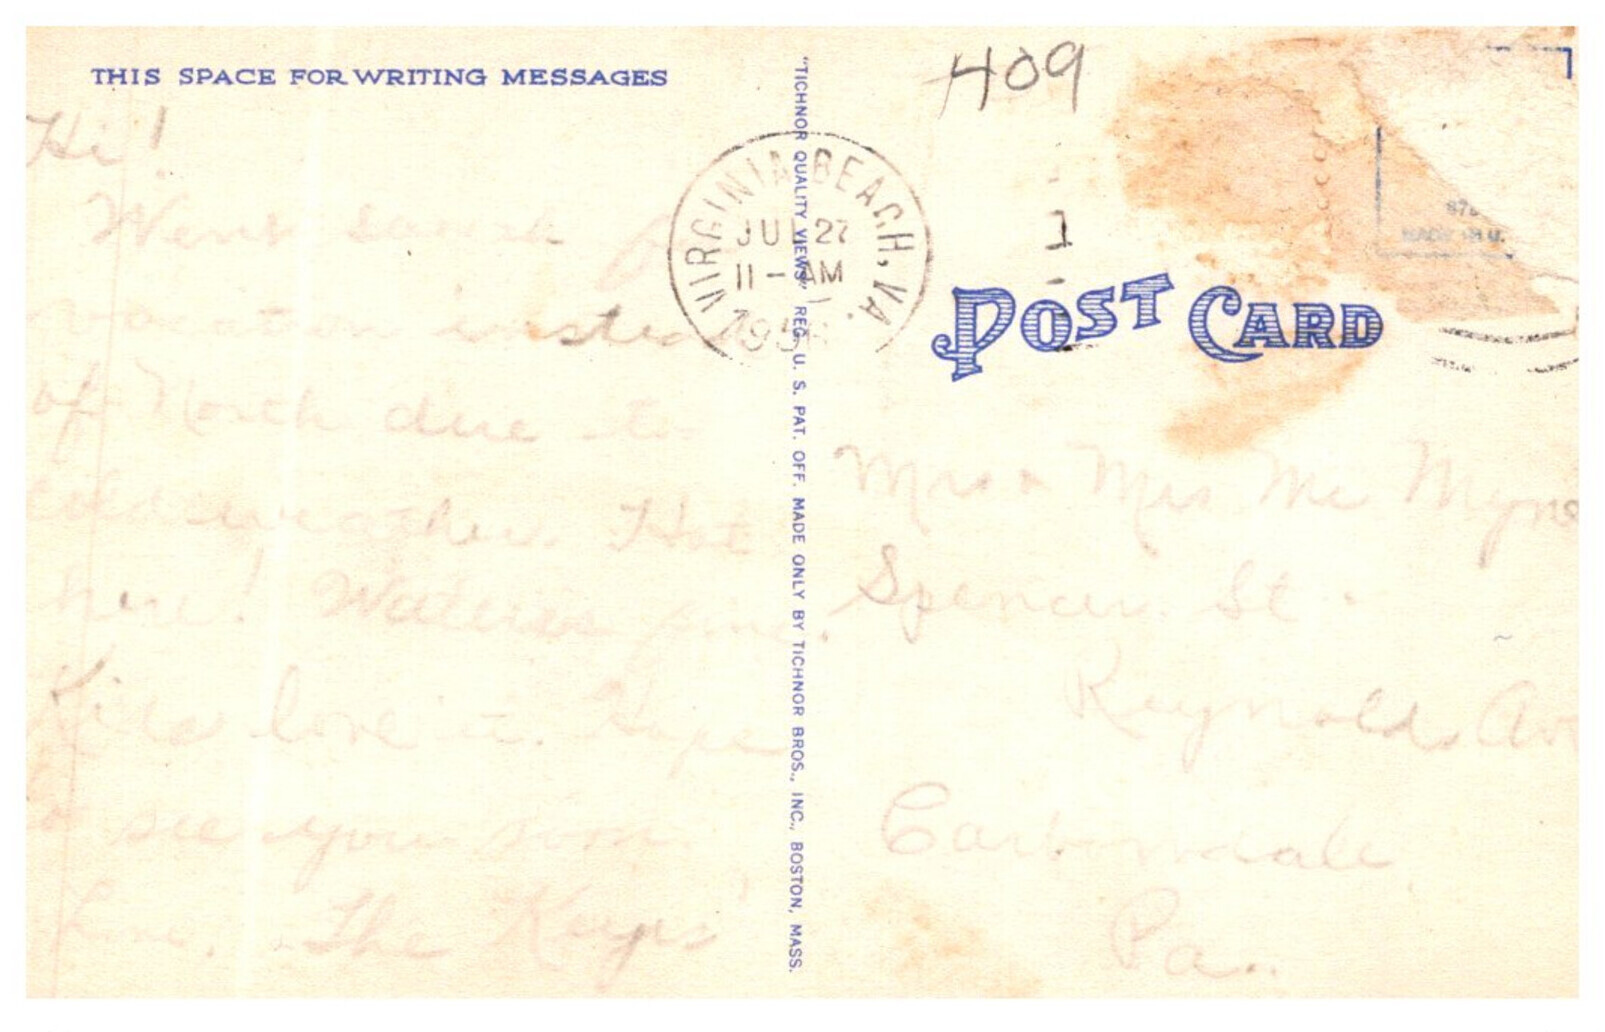 THIS SPACE FOR WRITING MESSAGES
Hi!
Went south for
vacation instead
of North due to
cold weather. Hot
here! Water's fine.
Kids love it. Hope
to see you soon
Love, The Keys'
"TICHNOR QUALITY VIEWS," REG. U. S. PAT. OFF. MADE ONLY BY TICHNOR BROS., INC., BOSTON, MASS.
VIRGINIA BEACH, VA.
JUL 27
11 - AM
409
POST CARD
Mrs & Mrs Mc Myne
Spencer St.
Reynolds Av
Carbondale,
Pa.